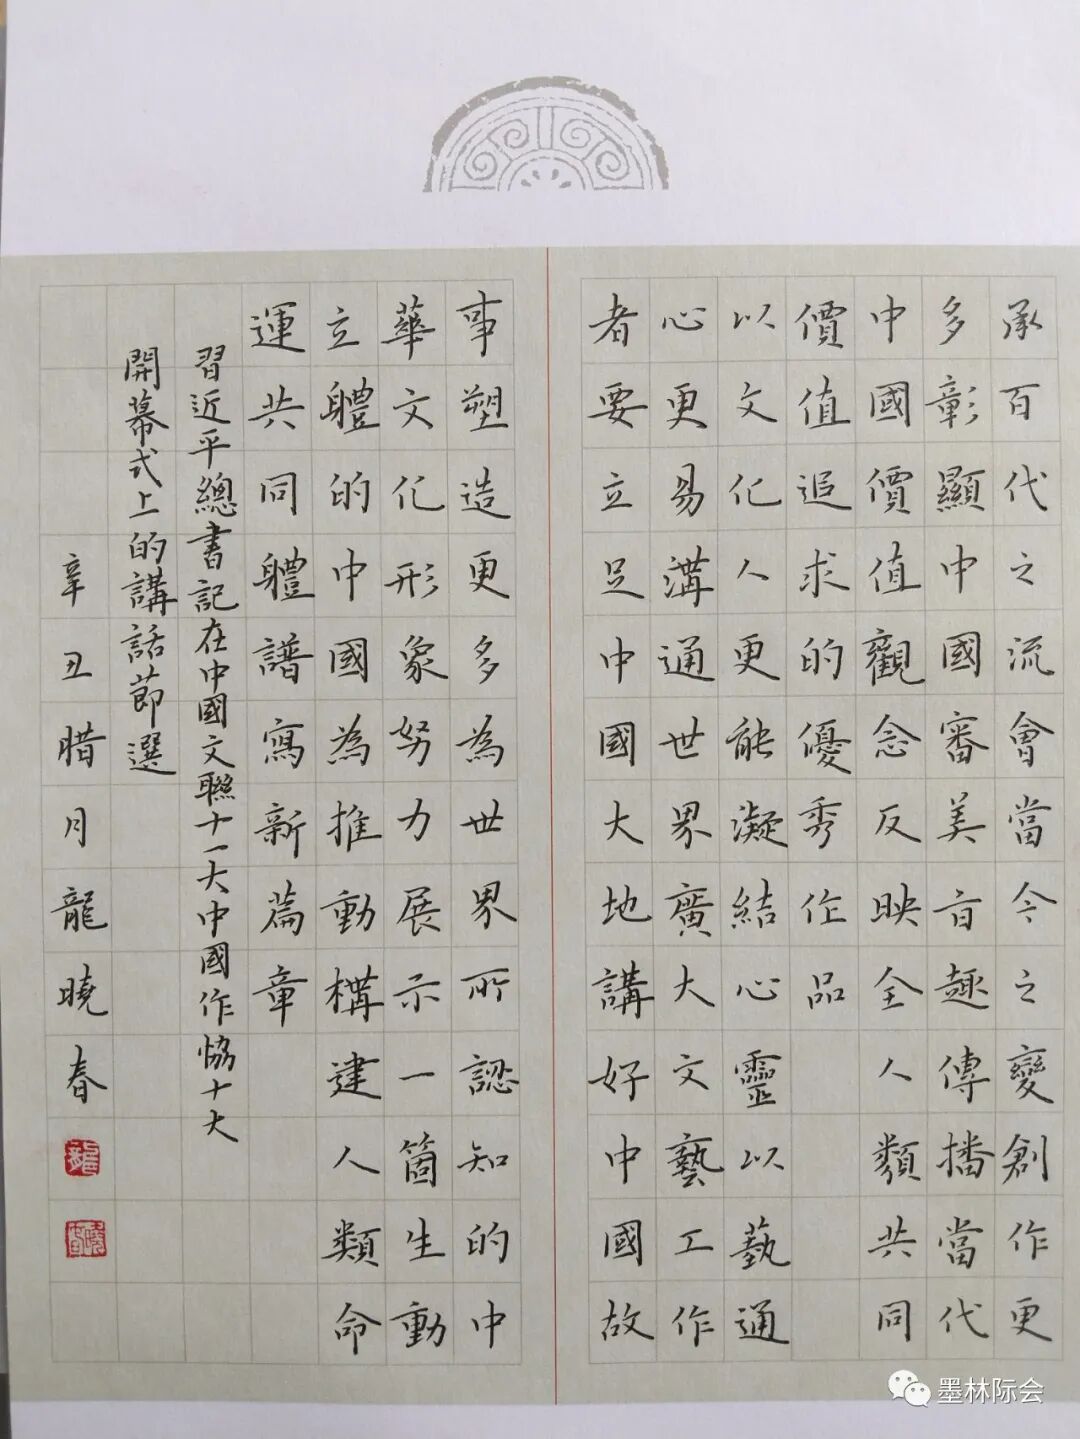 承百代之流會當今之變創作更
多彰顯中國審美旨趣傳播當代
中國價值觀念反映全人類共同
價值追求的優秀作品
以文化人更能凝結心靈以藝通
心更易溝通世界廣大文藝工作
者要立足中國大地講好中國故
事塑造更多為世界所認知的中
華文化形象努力展示一箇生動
立體的中國為推動構建人類命
運共同體譜寫新篇章
習近平總書記在中國文聯十一大中國作協十大
開幕式上的講話節選
辛丑腊月龍曉春
龍
曉春
墨林际会